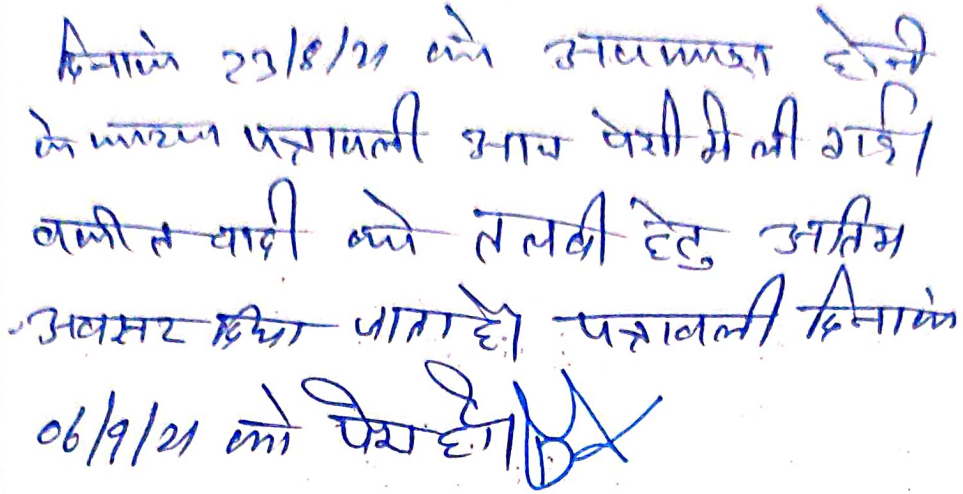 दिनांक 23/8/21 को अवकाश होने
के कारण पत्रावली आज पेशी में ली गई।
वकील वादी को तलबी हेतु अंतिम
अवसर दिया जाता है। पत्रावली दिनांक
06/9/21 को पेश हो।